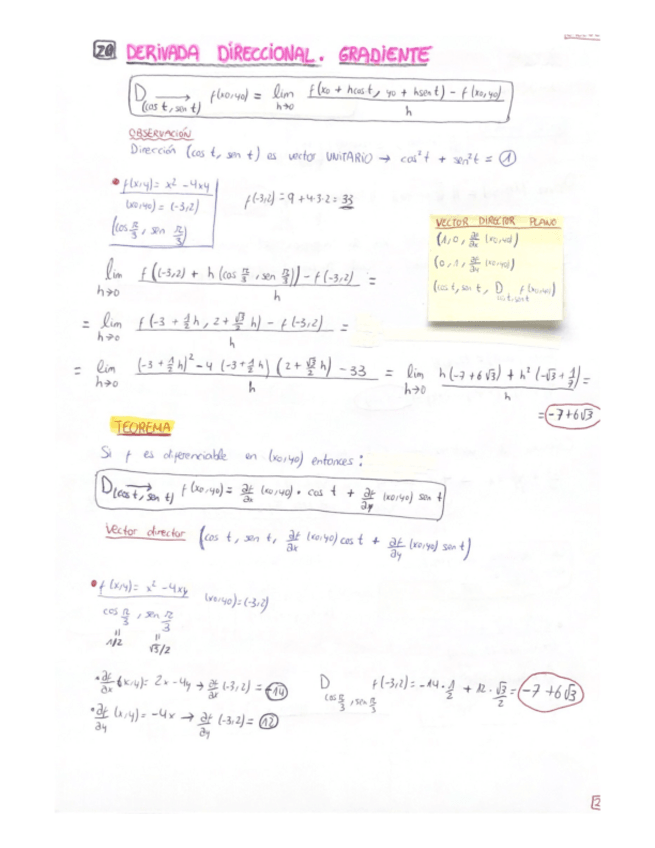 20 DERIVADA DIRECCIONAL. GRADIENTE
D(cos t, sen t) f(x0,y0) = lim h→0 f(x0 + hcos t, y0 + hsen t) - f(x0,y0) / h
OBSERVACIÓN
Dirección (cos t, sen t) es vector UNITARIO → cos²t + sen²t = 1
• f(x,y) = x² - 4xy
(x0,y0) = (-3,2)
(cos π/3, sen π/3)
f(-3,2) = 9 + 4·3·2 = 33
VECTOR DIRECTOR PLANO
(1, 0, ∂f/∂x (x0,y0))
(0, 1, ∂f/∂y (x0,y0))
(cos t, sen t, D cos t, sen t f(x0,y0))
lim h→0 f((-3,2) + h(cos π/3, sen π/3)) - f(-3,2) / h =
= lim h→0 f(-3 + 1/2 h, 2 + √3/2 h) - f(-3,2) / h =
= lim h→0 (-3 + 1/2 h)² - 4 (-3 + 1/2 h) (2 + √3/2 h) - 33 / h = lim h→0 h(-7 + 6√3) + h² (-√3 + 1/ ) / h =
= -7 + 6√3
TEOREMA
Si f es diferenciable en (x0,y0) entonces:
D(cos t, sen t) f(x0,y0) = ∂f/∂x (x0,y0) · cos t + ∂f/∂y (x0,y0) sen t
Vector director (cos t, sen t, ∂f/∂x (x0,y0) cos t + ∂f/∂y (x0,y0) sen t)
• f(x,y) = x² - 4xy (x0,y0) = (-3,2)
cos π/3, sen π/3
= =
1/2 √3/2
• ∂f/∂x (x,y) = 2x - 4y → ∂f/∂x (-3,2) = -14
• ∂f/∂y (x,y) = -4x → ∂f/∂y (-3,2) = 12
D cos π/3, sen π/3 f(-3,2) = -14 · 1/2 + 12 · √3/2 = -7 + 6√3